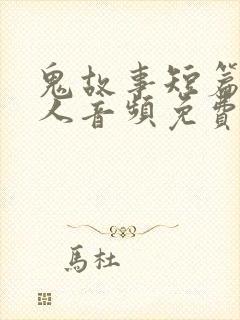 鬼故事短篇
人音頻免費
馬杜